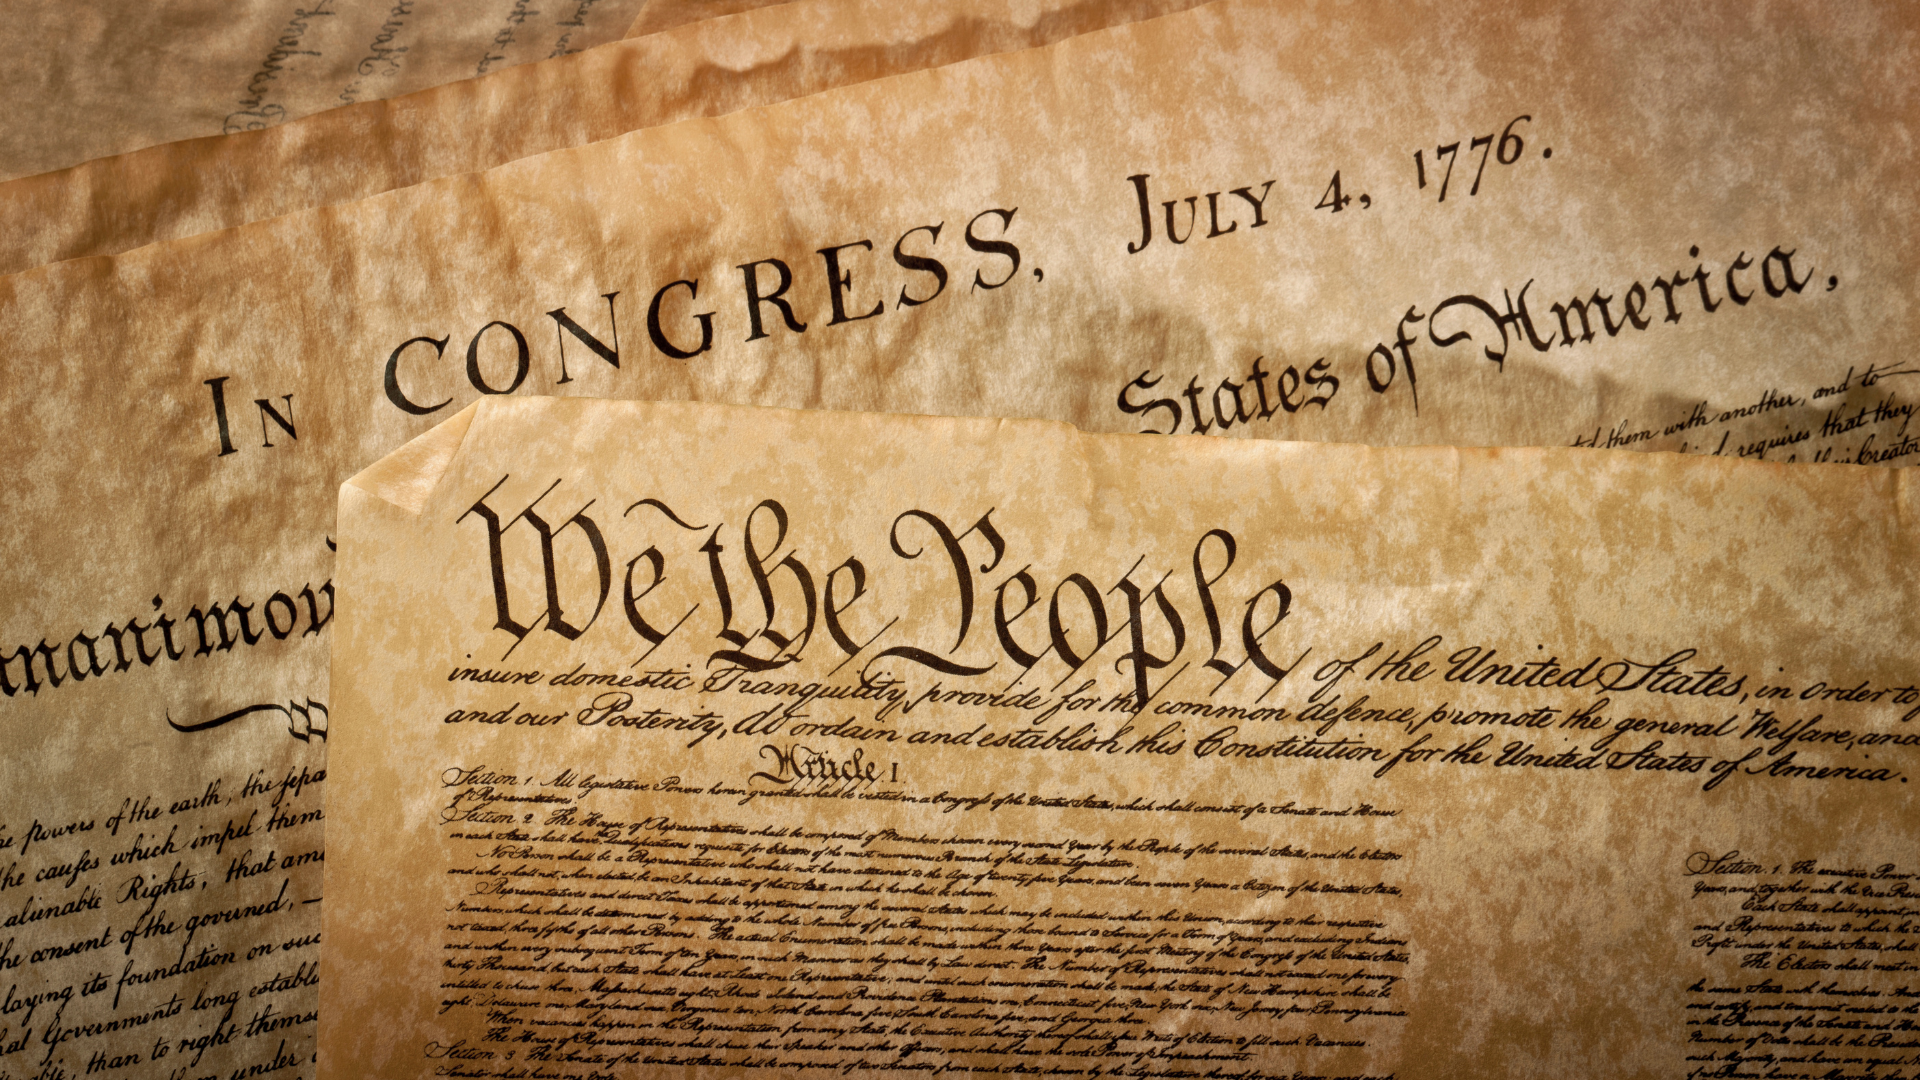 In CONGRESS, July 4, 1776.
States of America,
them with another, and to
requires that they
Creator
nanimou
W
powers of the earth, the sepa
he causes which impel them
alienable Rights, that amo
he consent of the governed, —
laying its foundation on suc
al Governments long establi
than to right themse
under
We the People of the United States, in Order to
insure domestic Tranquility, provide for the common defence, promote the general Welfare, and
and our Posterity, do ordain and establish this Constitution for the United States of America.
Article. I.
Section. 1. All legislative Powers herein granted shall be vested in a Congress of the United States, which shall consist of a Senate and House
of Representatives.
Section. 2. The House of Representatives shall be composed of Members chosen every second Year by the People of the several States, and the Electors
in each State shall have Qualifications requisite for Electors of the most numerous Branch of the State Legislature.
No Person shall be a Representative who shall not have attained to the Age of twenty five Years, and been seven Years a Citizen of the United States,
and who shall not, when elected, be an Inhabitant of that State in which he shall be chosen.
Representatives and direct Taxes shall be apportioned among the several States which may be included within this Union, according to their respective
Numbers, which shall be determined by adding to the whole Number of free Persons, including those bound to Service for a Term of Years, and excluding Indians
not taxed, three fifths of all other Persons. The actual Enumeration shall be made within three Years after the first Meeting of the Congress of the United States,
and within every subsequent Term of ten Years, in such Manner as they shall by Law direct. The Number of Representatives shall not exceed one for every
thirty Thousand, but each State shall have at Least one Representative; and until such enumeration shall be made, the State of New Hampshire shall be
entitled to chuse three, Massachusetts eight, Rhode Island and Providence Plantations one, Connecticut five, New York six, New Jersey four, Pennsylvania
eight, Delaware one, Maryland six, Virginia ten, North Carolina five, South Carolina five, and Georgia three.
When vacancies happen in the Representation from any State, the Executive Authority thereof shall issue Writs of Election to fill such Vacancies.
The House of Representatives shall chuse their Speaker and other Officers; and shall have the sole Power of Impeachment.
Section. 3. The Senate of the United States shall be composed of two Senators from each State, chosen by the Legislature thereof, for six Years; and each
Senator shall have one Vote.
Section. 1. The executive Power
Years, and, together with the Vice Presi
Each State shall appoint, in
and Representatives to which the
Profit under the United States, shall
The Electors shall meet in
the same State with themselves. And
and certify, and transmit sealed to the
in the Presence of the Senate and Ho
Number of Votes shall be the Presiden
such Majority, and have an equal N
if no Person have a Majority,